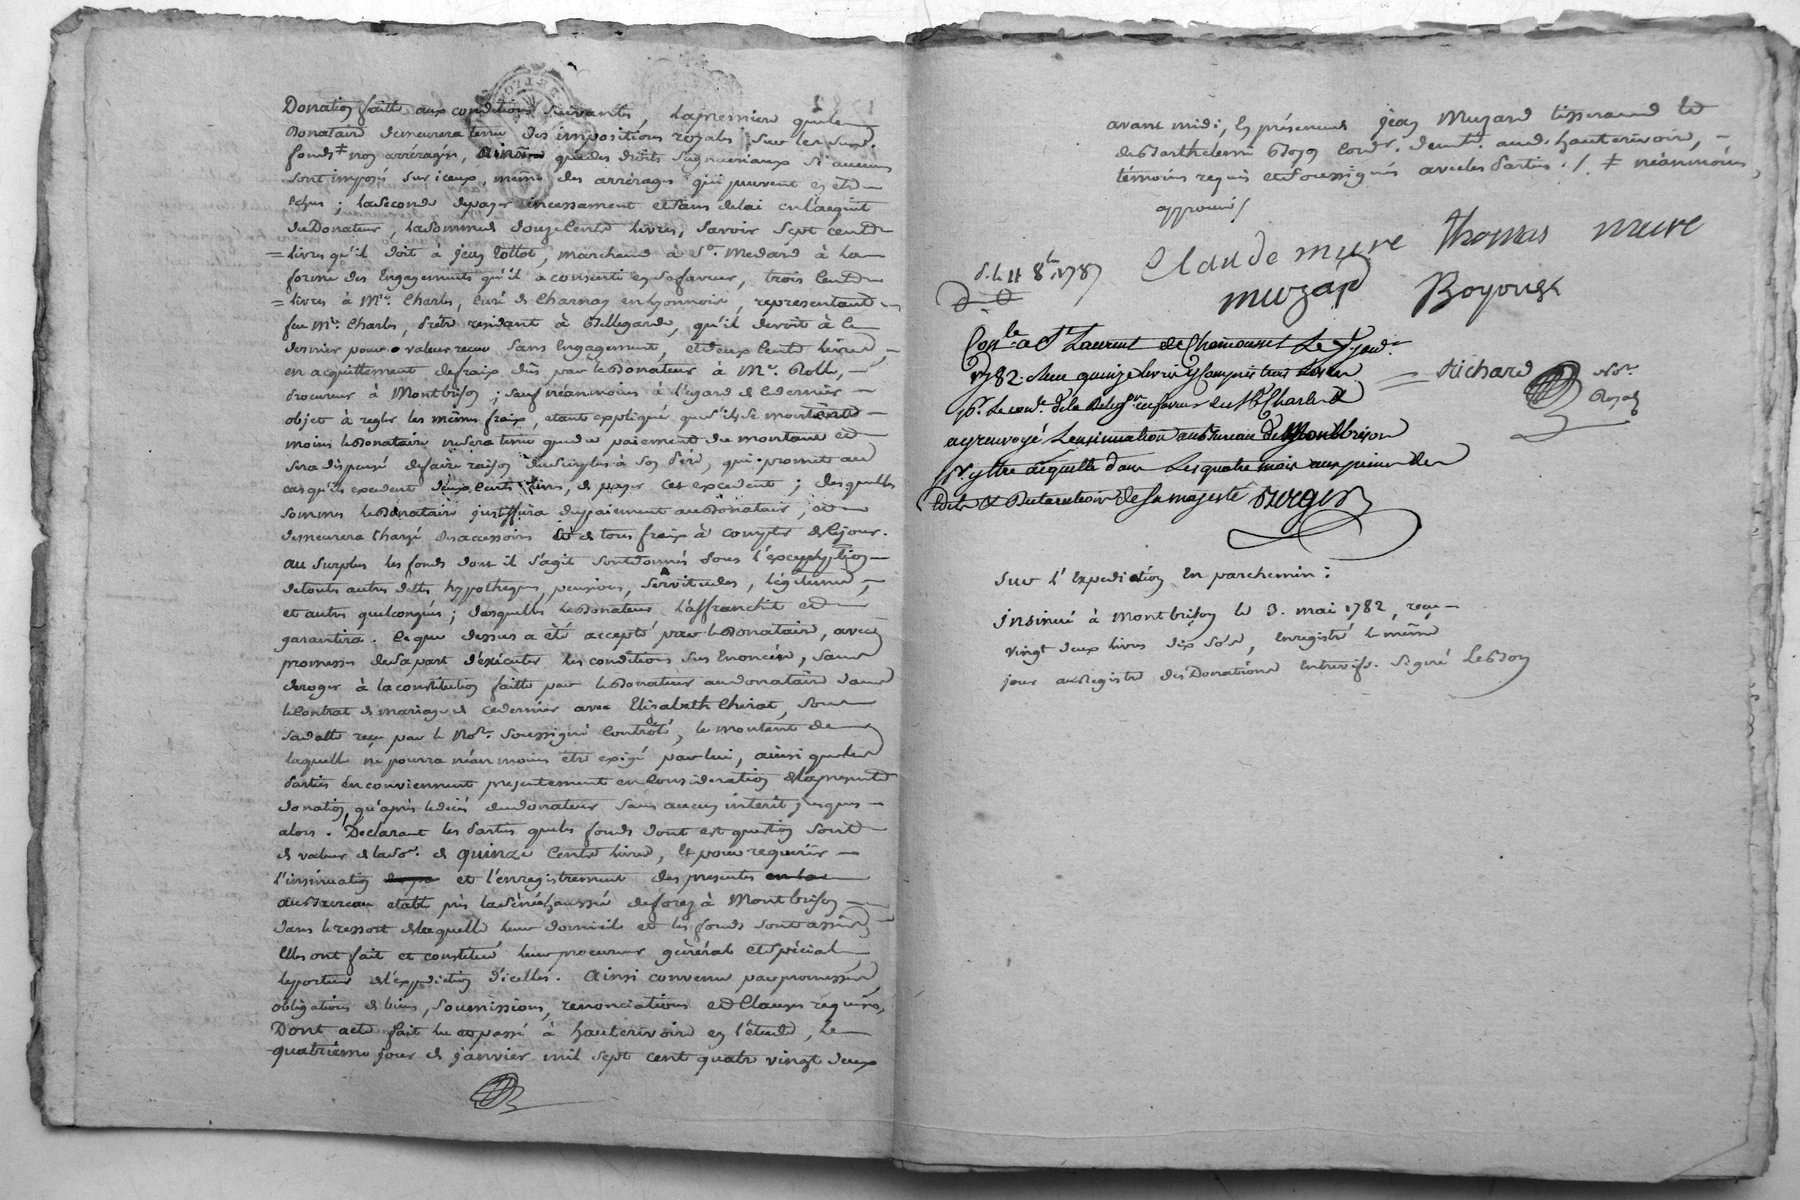 Donation faitte aux conditions suivantes, la premiere que le
Donataire demeurera tenu des impositions royales sur les susd.
fonds ≠ non arréragés, que des droits seigneuriaux si aucuns
sont imposés sur iceux, même des arrérages qui peuvent en etre
echus ; la seconde de payer incessament et sans delai en l'acquit
du Donateur, la somme de douze cents livres, savoir sept cents
livres qu'il doit à jean tollot, marchand à St. Medard à la
forme des Engagements qu'il a consenti en sa faveur, trois cents
livres à Mr. Charles, curé de Charnay en lyonnois, representant
feu Mr. Charles, Prêtre residant à Bellegarde, qu'il devoit à ce
dernier pour valeur reçue sans Engagement, et deux cents livres
en acquittement de fraix dus par le Donateur à Mr. Rolle,
Procureur à Montbrison ; sauf néanmoins à l'égard de ce dernier
objet à regler les mêmes fraix, étant expliqué que s'ils se montent à
moins le Donataire ne sera tenu que du paiement du montant et
sera dispensé de faire raison du surplus à son Père, qui promet au
cas qu'ils excedent deux cents livres, de payer cet excedent ; desquelles
sommes le Donataire justiffiera du paiement au Donateur, et
demeurera chargé des accessoires et de tous fraix à compter de ce jour.
au surplus les fonds dont il s'agit sont donnés sous l'exception
de touts autres dettes hypotheques, pensions, servitudes, légitimes,
et autres quelconques ; desquelles le Donateur l'affranchit et
garantira. Ce que dessus a été accepté par le Donataire, avec
promesses de sa part d'exécuter les conditions sus Enoncées, sans
deroger à la constitution faitte par le Donateur au donataire dans
le Contrat de mariage de ce dernier avec Elisabeth Cherat, sous
sa datte reçu par le Not. soussigné Controlé, le montant de
laquelle ne pourra néanmoins etre exigé par lui, ainsi que les
Parties en conviennent presentement en consideration de la presente
donation, qu'après le décès du donateur sans aucun interêt jusques
alors. Declarant les Parties que les fonds dont est question sont
de valeur de la so. de quinze Cents livres, Et pour requerir
l'insinuation et l'enregistrement des presentes
au Bureau etabli près la sénéchaussée de forez à Montbrison
dans le ressort de laquelle leur domicile et les fonds sont assis
Elles ont fait et constitué leur procureur général et spécial
le porteur de l'expedition d'icelles. Ainsi convenu par promesses
obligations de biens, soumissions, renonciations et Clauses requises,
Dont acte fait lu et passé à hauterivoire en l'étude, le
quatrieme jour de janvier mil sept cent quatre vingt deux
avant midi, En présence de jean Muzard tisserand et
de Barthelemi Boyon cordr. demts. aud. hauterivoire,
témoins requis et soussignés avec les Parties ./. ≠ néanmoins,
approuvé /
Claude mure Thomas mure
muzard
Conlé a St Laurent de Chamousset Le
1782. Reçu quinze livres
renvoyé L'insinuation au Bureau de Montbrison
dans Les quatre mois aux peines des
Edits & Declarations de sa majesté
Richard
sur l'Expedition En parchemin :
insinué à Montbrison le 3. mai 1782, reçu
vingt deux livres dix sols, Enregistré le même
jour au Registre des Donations Entrevifs. Signé LeBon